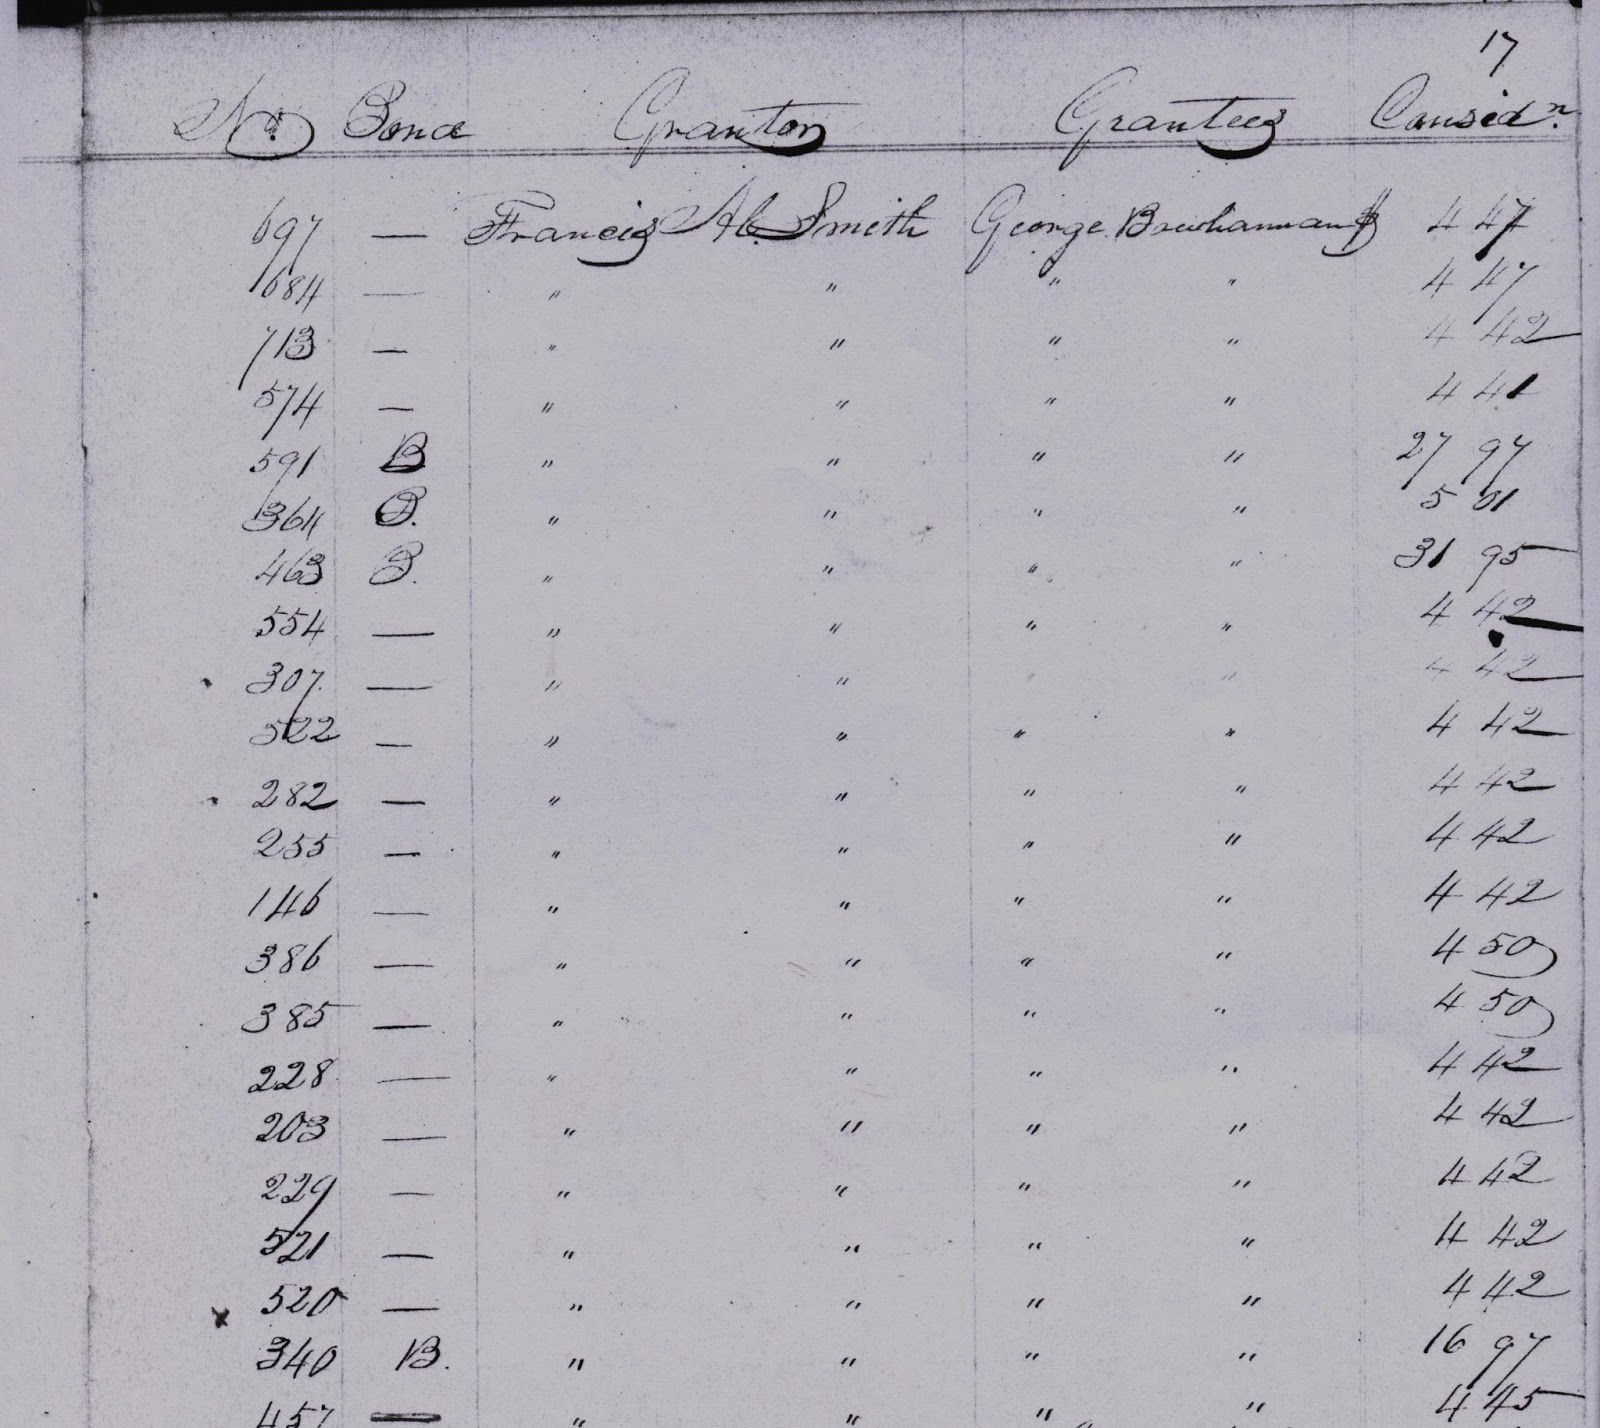 17
No. Bond Grantor Grantees Considn.
697 — Francis H. Smith George Buchannan $ 4 47
684 — " " " " 4 47
713 — " " " " 4 42
574 — " " " " 4 41
591 B " " " " 27 97
364 B. " " " " 5 01
463 B. " " " " 31 95
554 — " " " " 4 42
307. — " " " " 4 42
522 — " " " " 4 42
282 — " " " " 4 42
255 — " " " " 4 42
146 — " " " " 4 42
386 — " " " " 4 50
385 — " " " " 4 50
228 — " " " " 4 42
203 — " " " " 4 42
229 — " " " " 4 42
521 — " " " " 4 42
x 520 — " " " " 4 42
340 B. " " " " 16 97
457 — " " " " 4 45